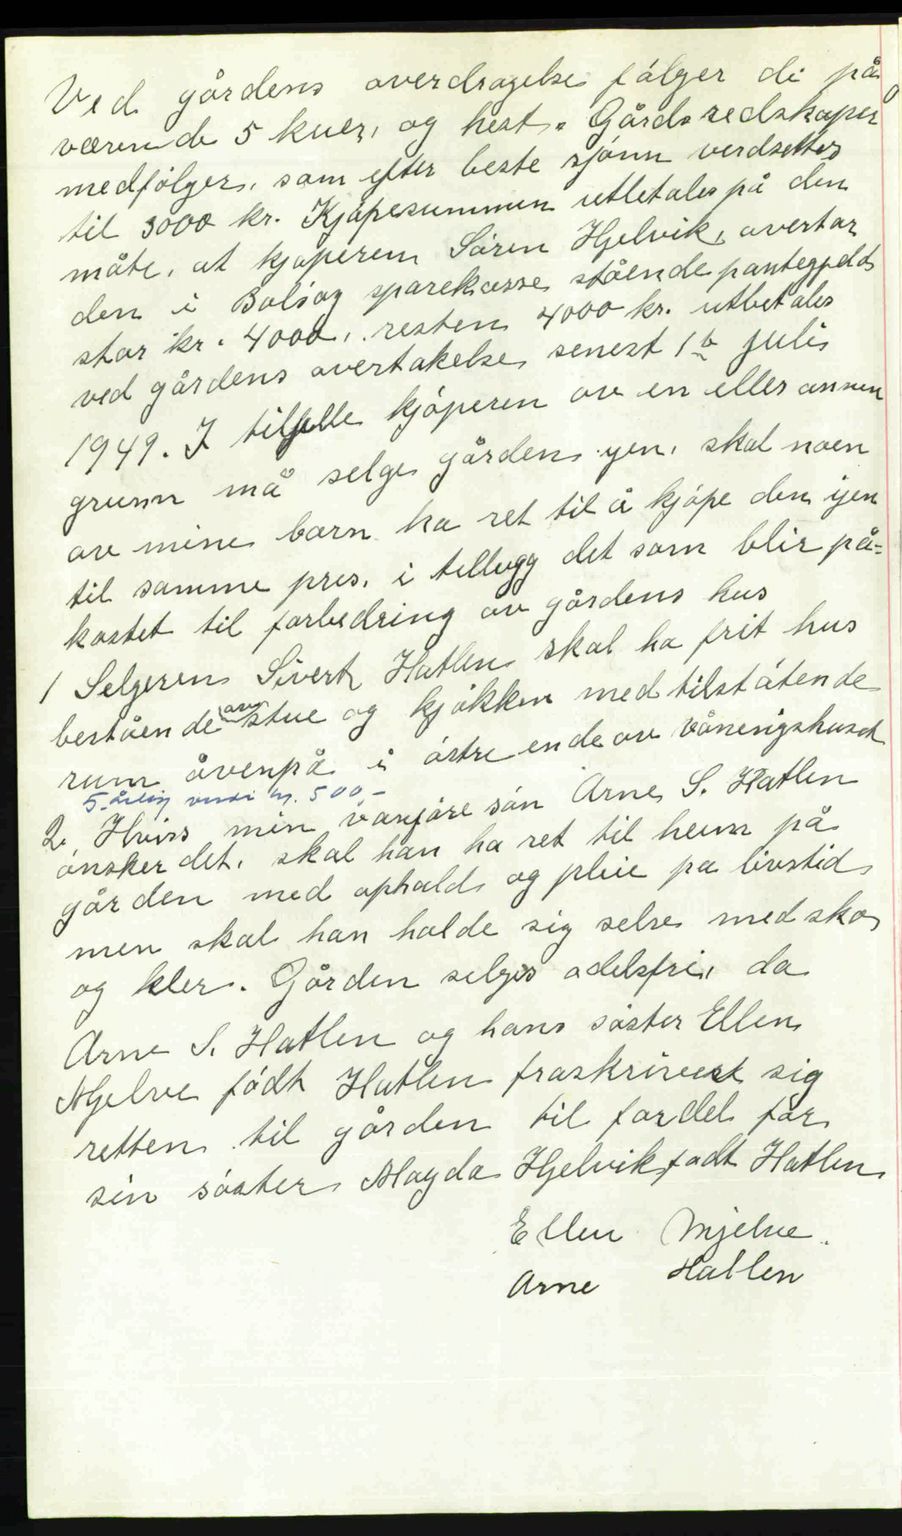 Ved gårdens overdragelse følger de på
værende 5 kuer, og hest. Gårds redskaper
medfølger, som efter beste sjønn verdsettes
til 3000 kr. Kjøpesummen utbetales på den
måte, at kjøperen Søren Hjelvik, overtar
den i Bolsøy sparekasse stående pantegjeld
stor kr. 4000, resten 4000 kr. utbetales
ved gårdens overtakelse senest 1ste juli
1949. I tilfelle kjøperen av en eller annen
grunn må selge gården igen, skal noen
av mine barn ha ret til å kjøpe den igen
til samme pris, i tillegg det som blir på=
kostet til forbedring av gårdens hus
1 Selgeren Sivert Hatlen skal ha frit hus
bestående av stue og kjøkken med tilstøtende
rum ovenpå i østre ende av våningshuset
5-årlig verdi kr. 500,-
2 Hvis min vanføre søn Arne S. Hatlen
ønsker det, skal han ha ret til heim på
gården med ophold og pleie pa livstid
men skal han holde sig selve med sko
og kler. Gården selges odelsfri, da
Arne S. Hatlen og hans søster Ellen
Mjelve født Hatlen fraskrivest sig
retten til gården til fordel for
sin søster Magda Hjelvik født Hatlen
Ellen Mjelve.
Arne Hatlen